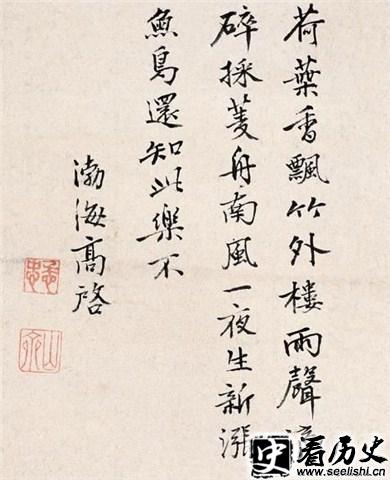 荷葉香飄竹外樓雨聲
碎採菱舟南風一夜生新漲
魚鳥還知此樂不
渤海高啓
史看历史
www.seelishi.cn